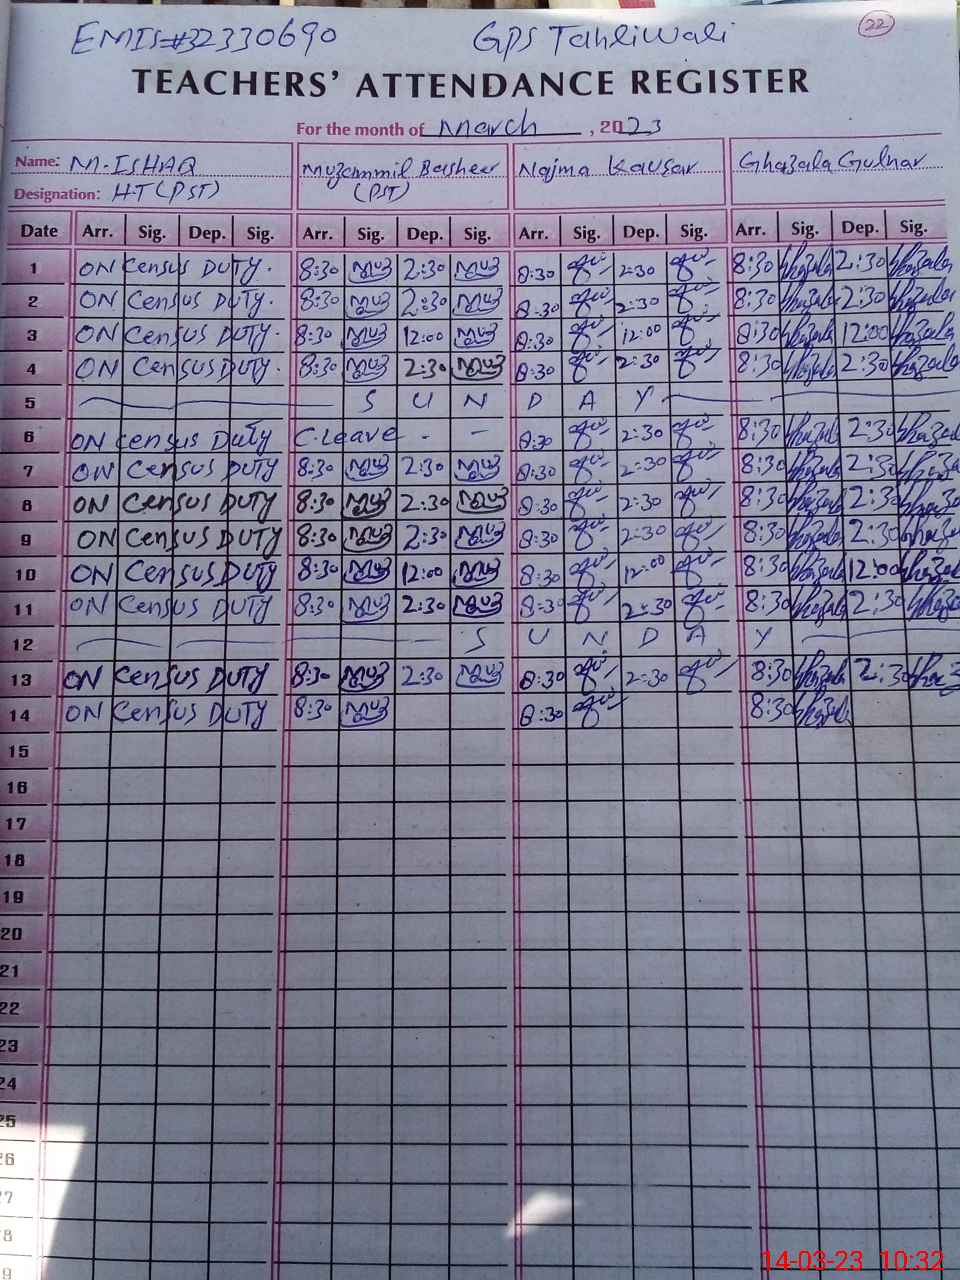 22
EMIS#32330690 GPS Tahliwali
TEACHERS' ATTENDANCE REGISTER
For the month of March, 2023
Name: M-ISHAQ Muzammil Basheer Najma Kausar Ghazala Gulnar
Designation: HT (PST) (PST)
Date Arr. Sig. Dep. Sig. Arr. Sig. Dep. Sig. Arr. Sig. Dep. Sig. Arr. Sig. Dep. Sig.
1 ON Census DUTY. 8:30 Muz 2:30 Muz 8:30 2:30 8:30 Ghazala 2:30 Ghazala
2 ON Census DUTY. 8:30 Muz 2:30 Muz 8:30 2:30 8:30 Ghazala 2:30 Ghazala
3 ON Census DUTY. 8:30 Muz 12:00 Muz 8:30 12:00 8:30 Ghazala 12:00 Ghazala
4 ON Census DUTY. 8:30 Muz 2:30 Muz 8:30 2:30 8:30 Ghazala 2:30 Ghazala
5 S U N D A Y
6 ON census Duty C.Leave - - 8:30 2:30 8:30 Ghazala 2:30 Ghazala
7 ON Census DUTY 8:30 Muz 2:30 Muz 8:30 2:30 8:30 Ghazala 2:30 Ghazala
8 ON Census DUTY 8:30 Muz 2:30 Muz 8:30 2:30 8:30 Ghazala 2:30 Ghazala
9 ON Census DUTY 8:30 Muz 2:30 Muz 8:30 2:30 8:30 Ghazala 2:30 Ghazala
10 ON Census DUTY 8:30 Muz 12:00 Muz 8:30 12:00 8:30 Ghazala 12:00 Ghazala
11 ON Census DUTY 8:30 Muz 2:30 Muz 8:30 2:30 8:30 Ghazala 2:30 Ghazala
12 S U N D A Y
13 ON Census DUTY 8:30 Muz 2:30 Muz 8:30 2:30 8:30 Ghazala 2:30 Ghaz
14 ON Census DUTY 8:30 Muz 8:30 8:30 Ghazala
15
16
17
18
19
20
21
22
23
24
25
26
7
8
9
14-03-23 10:32